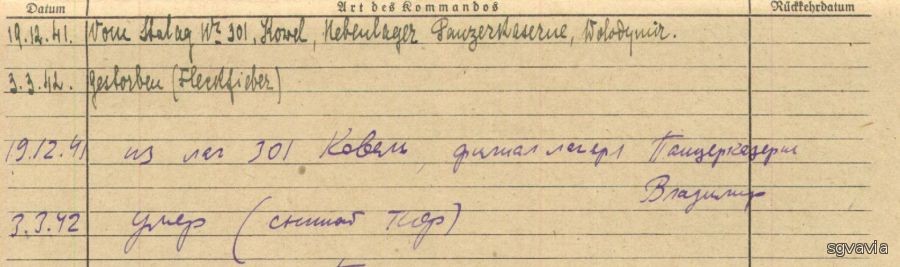 Datum Art des Kommandos Rückkehrdatum
19.12.41. Vom Stalag № 301, Kowel, Nebenlager Panzerkaserne, Wolodymir.
3.3.42. Gestorben (Fleckfieber)
19.12.41 из лаг 301 Ковель, филиал лагеря Панцерказерне
Владимир
3.3.42 умер (сыпной тиф)
sgvavia